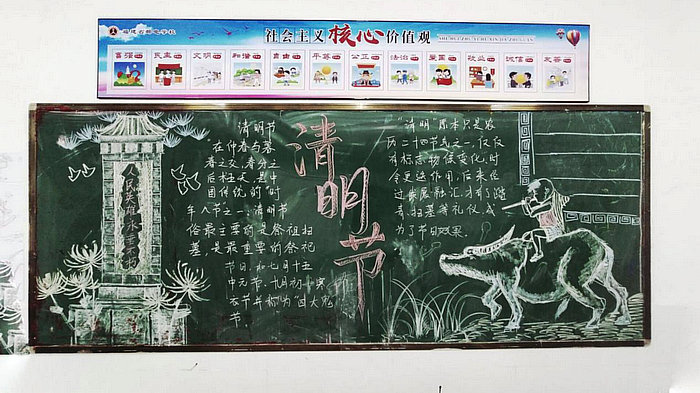 福建省邮电学校
社会主义核心价值观
SHE HUI ZHU YI HE XIN JIA ZHI GUAN
富强 民主 文明 和谐 自由 平等 公正 法治 爱国 敬业 诚信 友善
人民英雄永垂不朽
清明节
清明节
在仲春与暮
春之交,春分之
后
中
国传统的时
年八节之一,清明节
俗最主要的是祭祖扫
墓,是最重要的祭祀
节日,和七月十五
中元节,十月初一寒
衣节并称为四大鬼
节。
"清明"原本只是农
历二十四节气之一,仅仅
有标志物候变化、时
令更迭作用,后来经
过发展融汇,才有了踏
青、扫墓等礼仪,成
为了节日